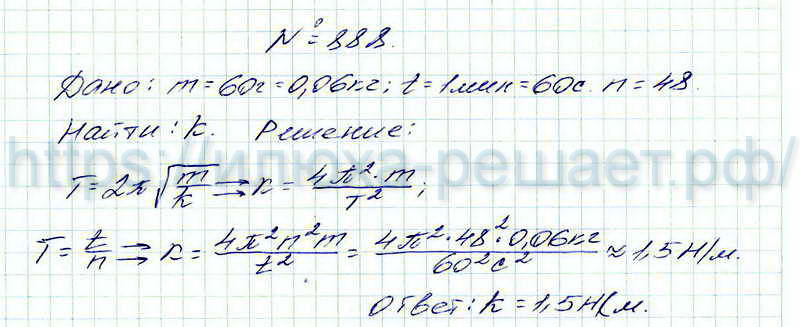 № 888.
Дано: m=60г=0,06кг; t=1мин=60с. n=48.
Найти: k. Решение:
https://илюха-решает.рф/
T=2π√(m/k) → k = (4π²·m)/T²;
T = t/n → k = (4π²n²m)/t² = (4π²·48²·0,06кг)/(60²с²) ≈ 1,5Н/м.
Ответ: k = 1,5Н/м.